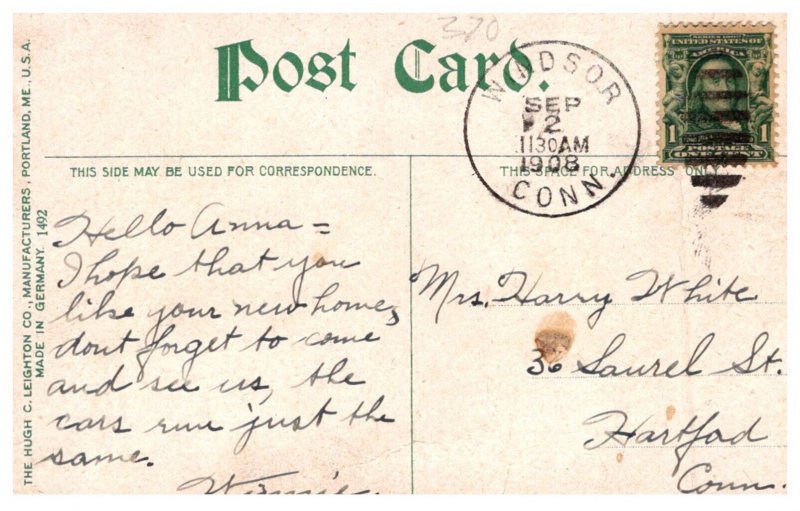 370
Post Card.
WINDSOR
SEP
2
1130AM
1908
CONN.
SERIES 1902
UNITED STATES OF
AMERICA
1 1
POSTAGE
ONE CENT
THIS SIDE MAY BE USED FOR CORRESPONDENCE.
THIS SPACE FOR ADDRESS ONLY.
THE HUGH C. LEIGHTON CO., MANUFACTURERS, PORTLAND, ME., U.S.A.
MADE IN GERMANY. 1492
Hello Anna =
I hope that you
like your new home,
dont forget to come
and see us, the
cars run just the
same.
Mrs. Harry White
36 Laurel St.
Hartford
Conn.